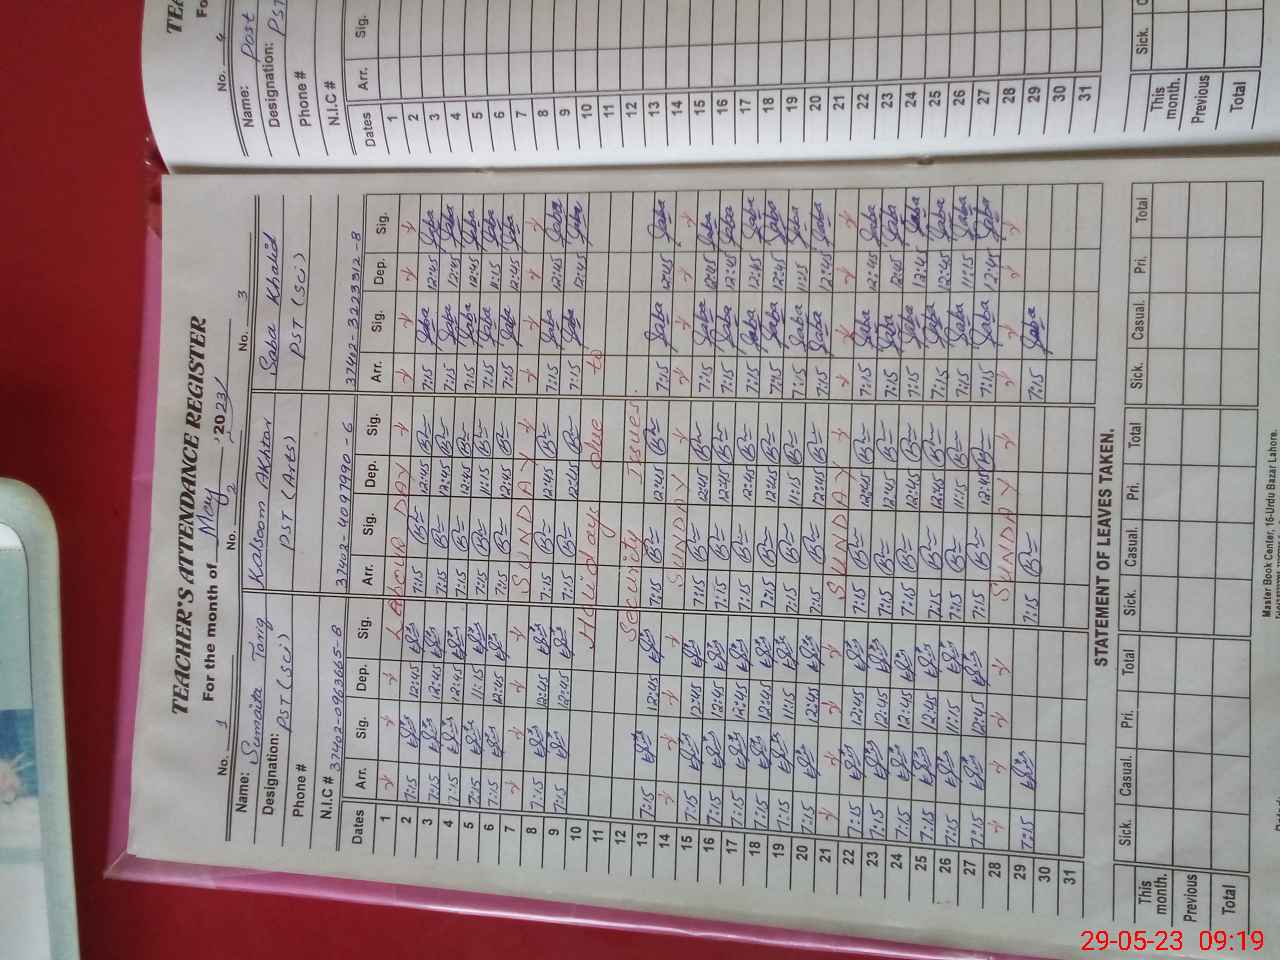 TEACHER'S ATTENDANCE REGISTER
For the month of May, 2023
No. 1 No. 2 No. 3
Name: Sumaita Tariq Kalsoom Akhtar Saba Khalid
Designation: PST (Sci) PST (Arts) PST (Sci)
Phone #
N.I.C #
Dates Arr. Sig. Dep. Sig. Arr. Sig. Dep. Sig. Arr. Sig. Dep. Sig.
1 LABOUR DAY
2 7:15 12:45 7:15 12:45 7:15 Saba 12:45 Saba
3 7:15 12:45 7:15 12:45 7:15 Saba 12:45 Saba
4 7:15 12:45 7:15 12:45 7:15 Saba 12:45 Saba
5 7:15 11:15 7:15 11:15 7:15 Saba 11:15 Saba
6 7:15 12:45 7:15 12:45 7:15 Saba 12:45 Saba
7 SUNDAY
8 7:15 12:45 7:15 12:45 7:15 Saba 12:45 Saba
9 7:15 12:45 7:15 12:45 7:15 Saba 12:45 Saba
10 Holiday due to
11
12 Security issues.
13 7:15 12:45 7:15 12:45 7:15 Saba 12:45 Saba
14 SUNDAY
15 7:15 12:45 7:15 12:45 7:15 Saba 12:45 Saba
16 7:15 12:45 7:15 12:45 7:15 Saba 12:45 Saba
17 7:15 12:45 7:15 12:45 7:15 Saba 12:45 Saba
18 7:15 12:45 7:15 12:45 7:15 Saba 12:45 Saba
19 7:15 11:15 7:15 11:15 7:15 Saba 11:15 Saba
20 7:15 12:45 7:15 12:45 7:15 Saba 12:45 Saba
21 SUNDAY
22 7:15 12:45 7:15 12:45 7:15 Saba 12:45 Saba
23 7:15 12:45 7:15 12:45 7:15 Saba 12:45 Saba
24 7:15 12:45 7:15 12:45 7:15 Saba 12:45 Saba
25 7:15 12:45 7:15 12:45 7:15 Saba 12:45 Saba
26 7:15 11:15 7:15 11:15 7:15 Saba 11:15 Saba
27 7:15 12:45 7:15 12:45 7:15 Saba 12:45 Saba
28 SUNDAY
29 7:15 7:15 7:15 Saba
30
31
STATEMENT OF LEAVES TAKEN.
Sick. Casual. Pri. Total Sick. Casual. Pri. Total Sick. Casual. Pri. Total
This month.
Previous
Total
Master Book Center, 16-Urdu Bazar Lahore.
No. 4
Name: Post
Designation: PST
Phone #
N.I.C #
Dates Arr. Sig.
1
2
3
4
5
6
7
8
9
10
11
12
13
14
15
16
17
18
19
20
21
22
23
24
25
26
27
28
29
30
31
Sick.
This month.
Previous
Total
29-05-23 09:19